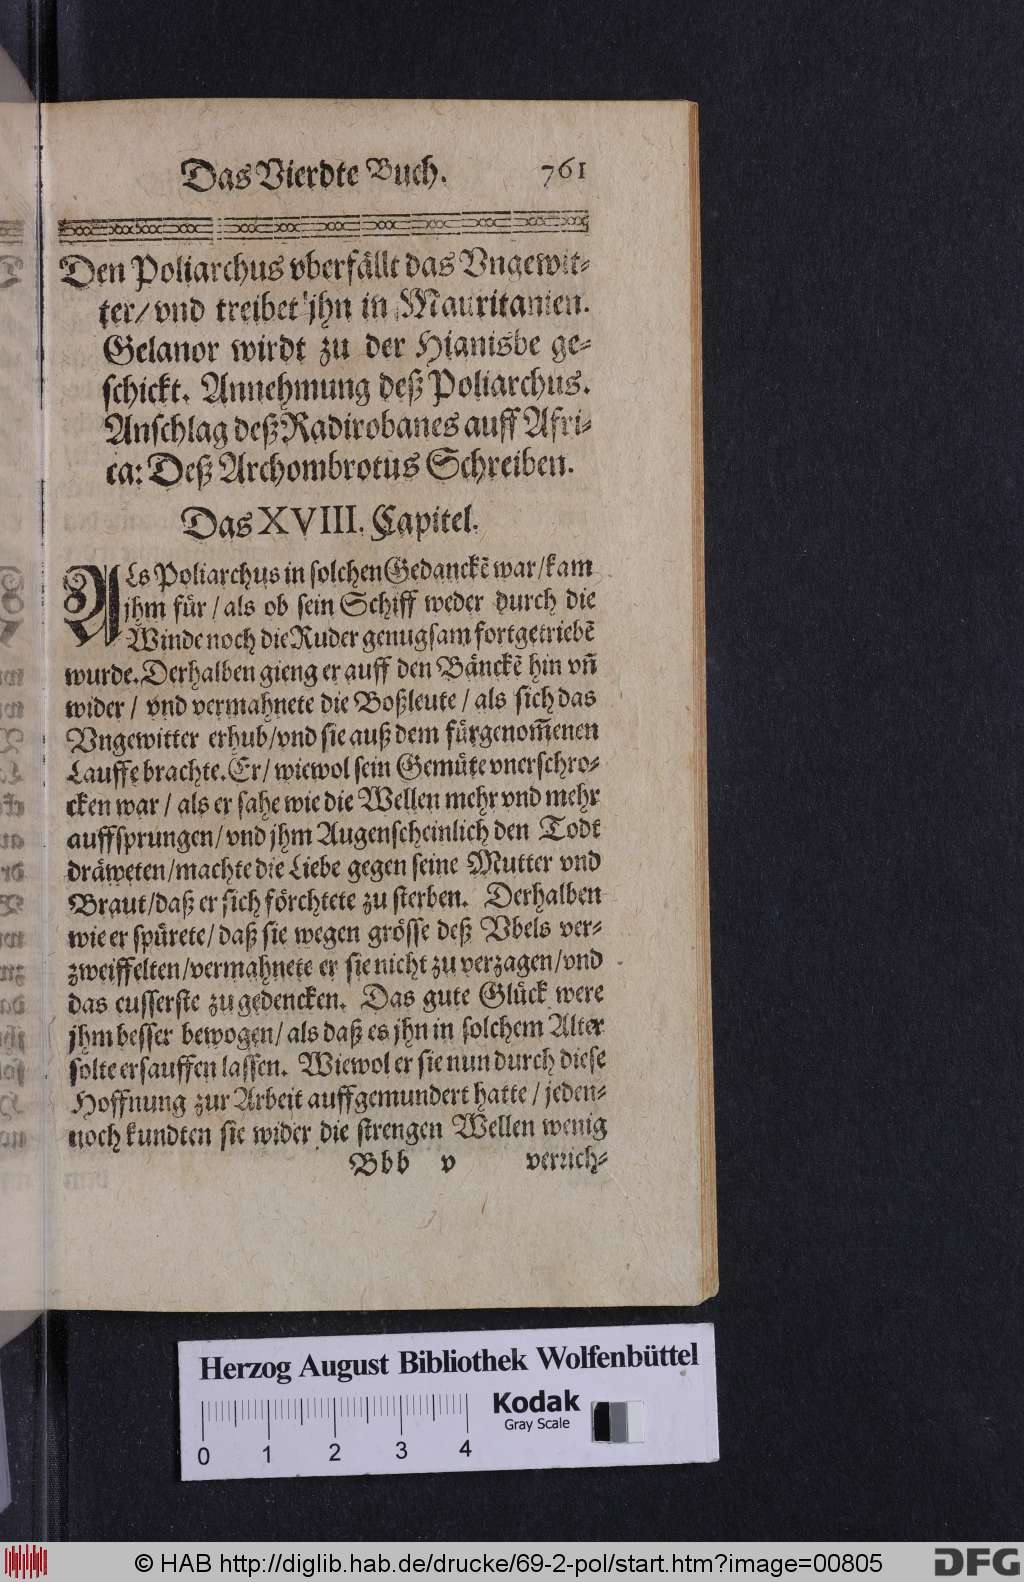 Das Vierdte Buch. 761
Den Poliarchus vberfällt das Vngewit-
ter/ vnd treibet jhn in Mauritanien.
Gelanor wirdt zu der Hianisbe ge-
schickt. Annehmung deß Poliarchus.
Anschlag deß Radirobanes auff Afri-
ca: Deß Archombrotus Schreiben.
Das XVIII. Capitel.
ALs Poliarchus in solchen Gedanckẽ war/ kam
jhm für / als ob sein Schiff weder durch die
Winde noch die Ruder genugsam fortgetriebẽ
wurde. Derhalben gieng er auff den Bänckẽ hin vñ
wider / vnd vermahnete die Boßleute / als sich das
Vngewitter erhub/ vnd sie auß dem fürgenom̃enen
Lauffe brachte. Er/ wiewol sein Gemüte vnerschro-
cken war / als er sahe wie die Wellen mehr vnd mehr
auffsprungen/ vnd jhm Augenscheinlich den Todt
dräweten/ machte die Liebe gegen seine Mutter vnd
Braut/ daß er sich förchtete zu sterben. Derhalben
wie er spürete/ daß sie wegen grösse deß Vbels ver-
zweiffelten/ vermahnete er sie nicht zu verzagen/ vnd
das eusserste zu gedencken. Das gute Glück were
jhm besser bewogen/ als daß es jhn in solchem Alter
solte ersauffen lassen. Wiewol er sie nun durch diese
Hoffnung zur Arbeit auffgemundert hatte / jeden-
noch kundten sie wider die strengen Wellen wenig
Bbb v verrich-
Herzog August Bibliothek Wolfenbüttel
Kodak
Gray Scale
0 1 2 3 4
© HAB http://diglib.hab.de/drucke/69-2-pol/start.htm?image=00805
DFG